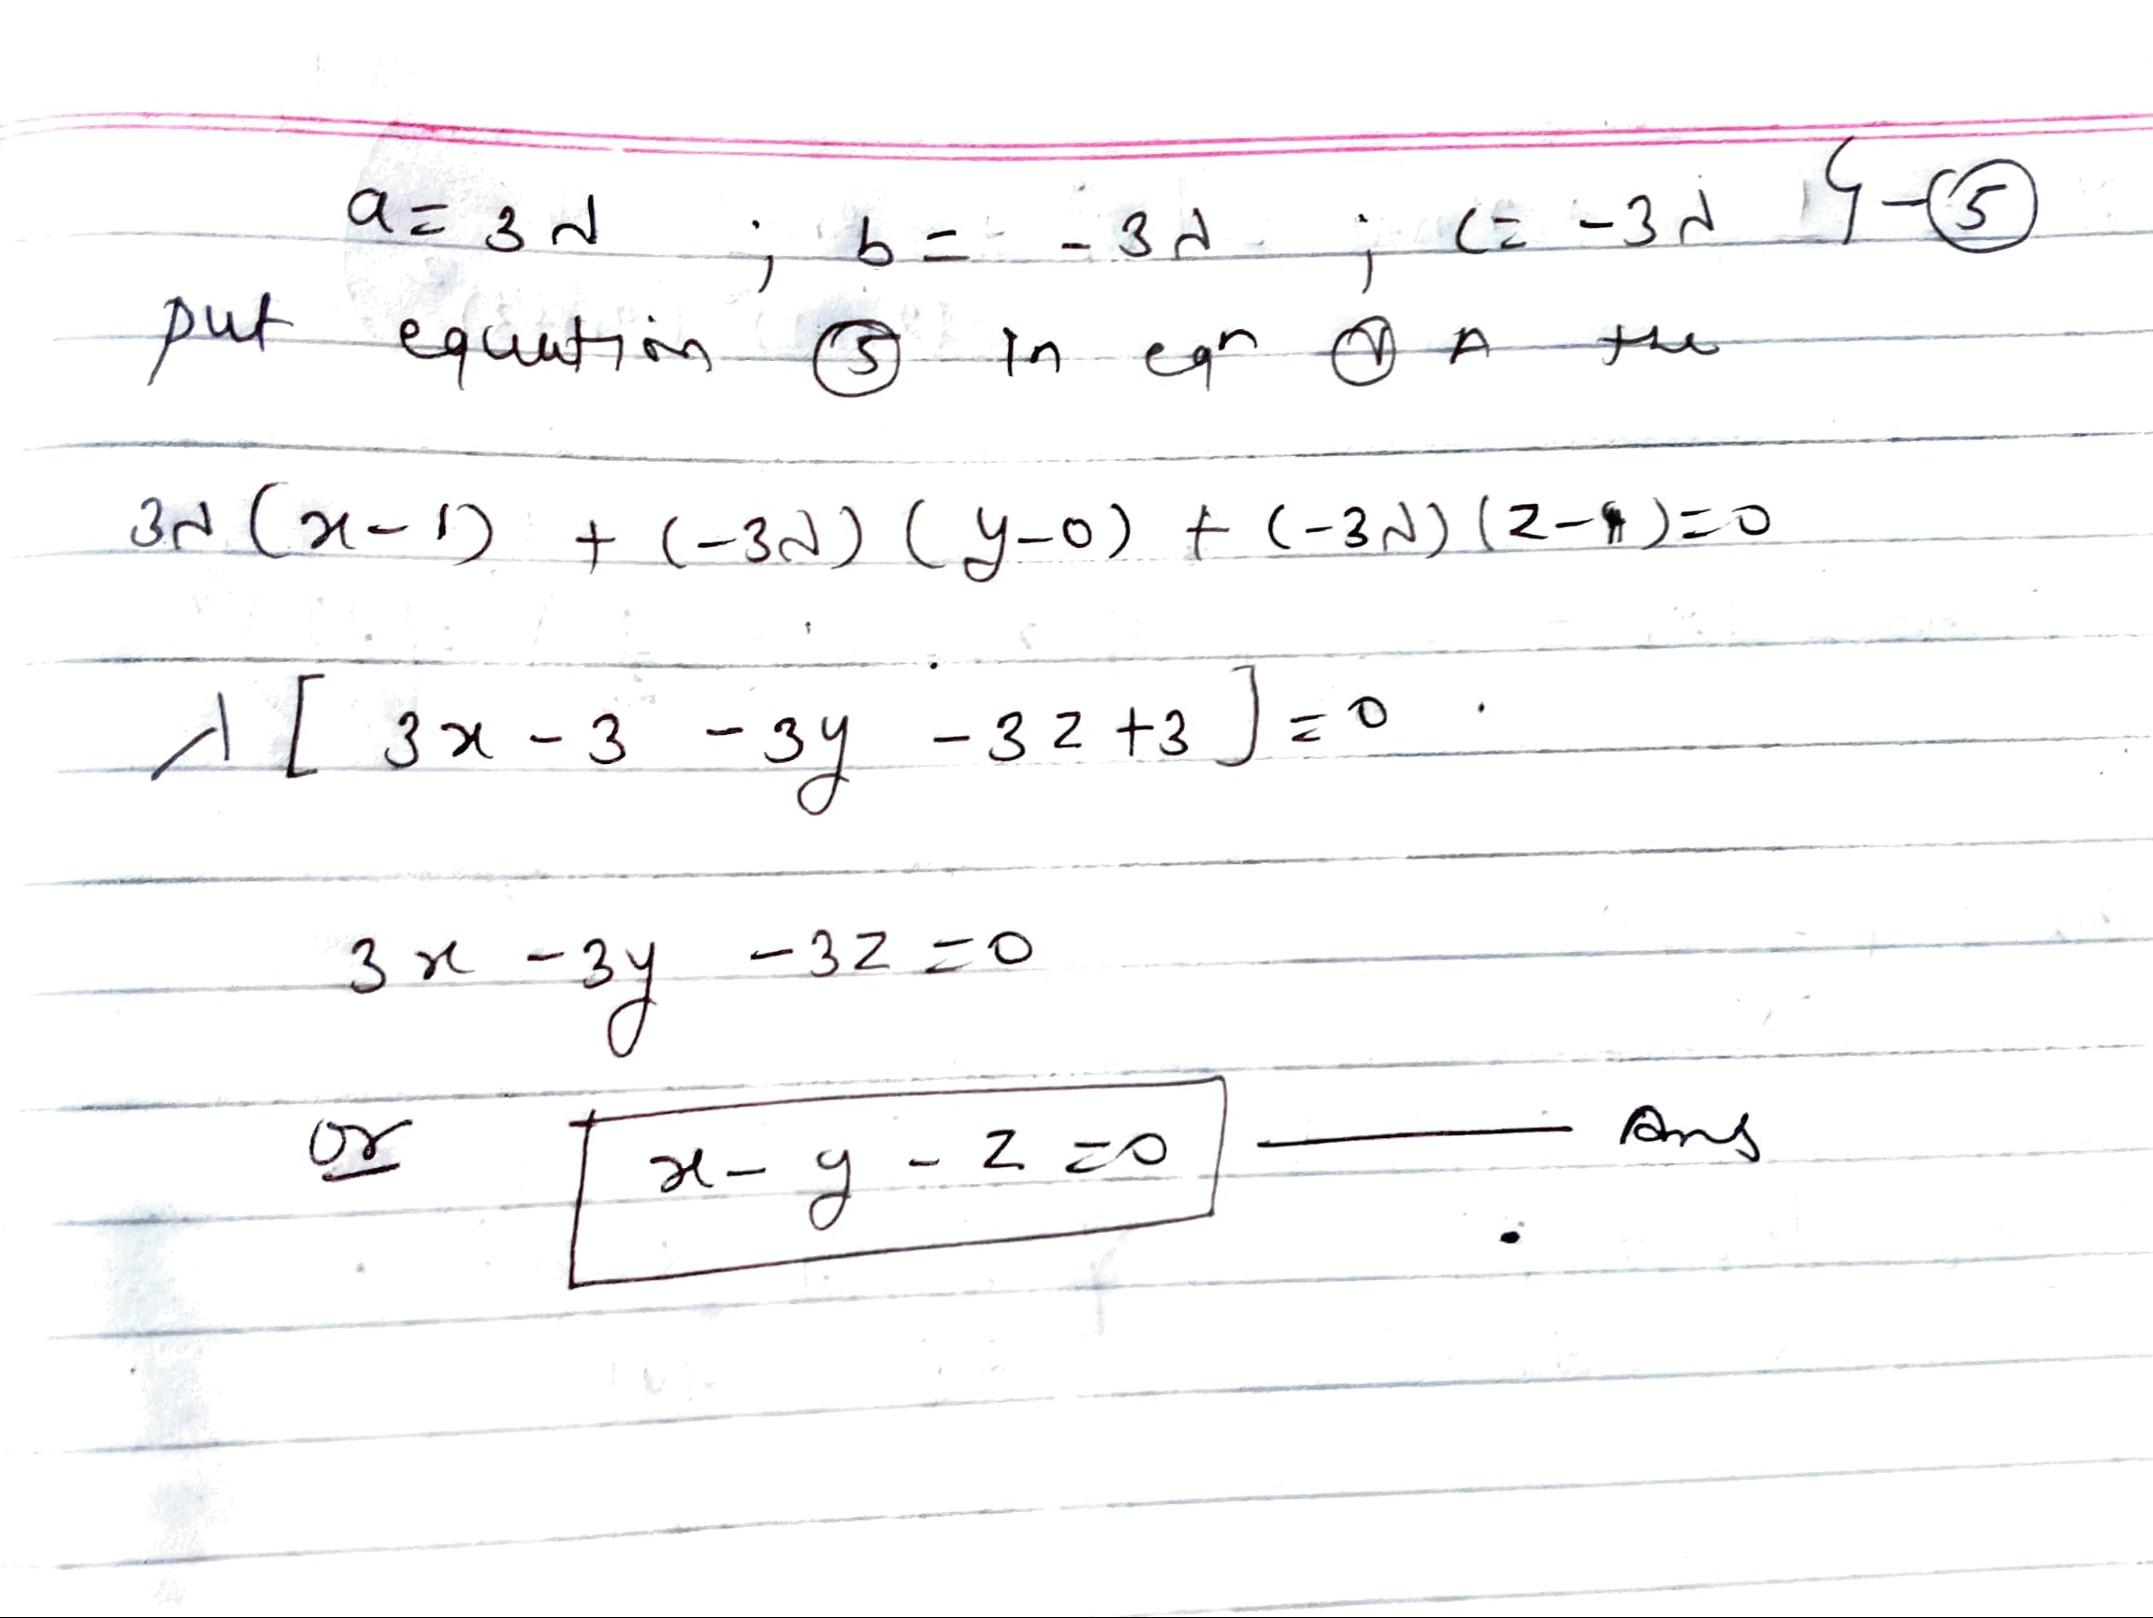 a = 3λ ; b = -3λ ; c = -3λ } - (5)
put equation (5) in eqn (1) the
3λ (x-1) + (-3λ) (y-0) + (-3λ) (z-1) = 0
λ [ 3x - 3 - 3y - 3z + 3 ] = 0
3x - 3y - 3z = 0
or x - y - z = 0 —— Ans